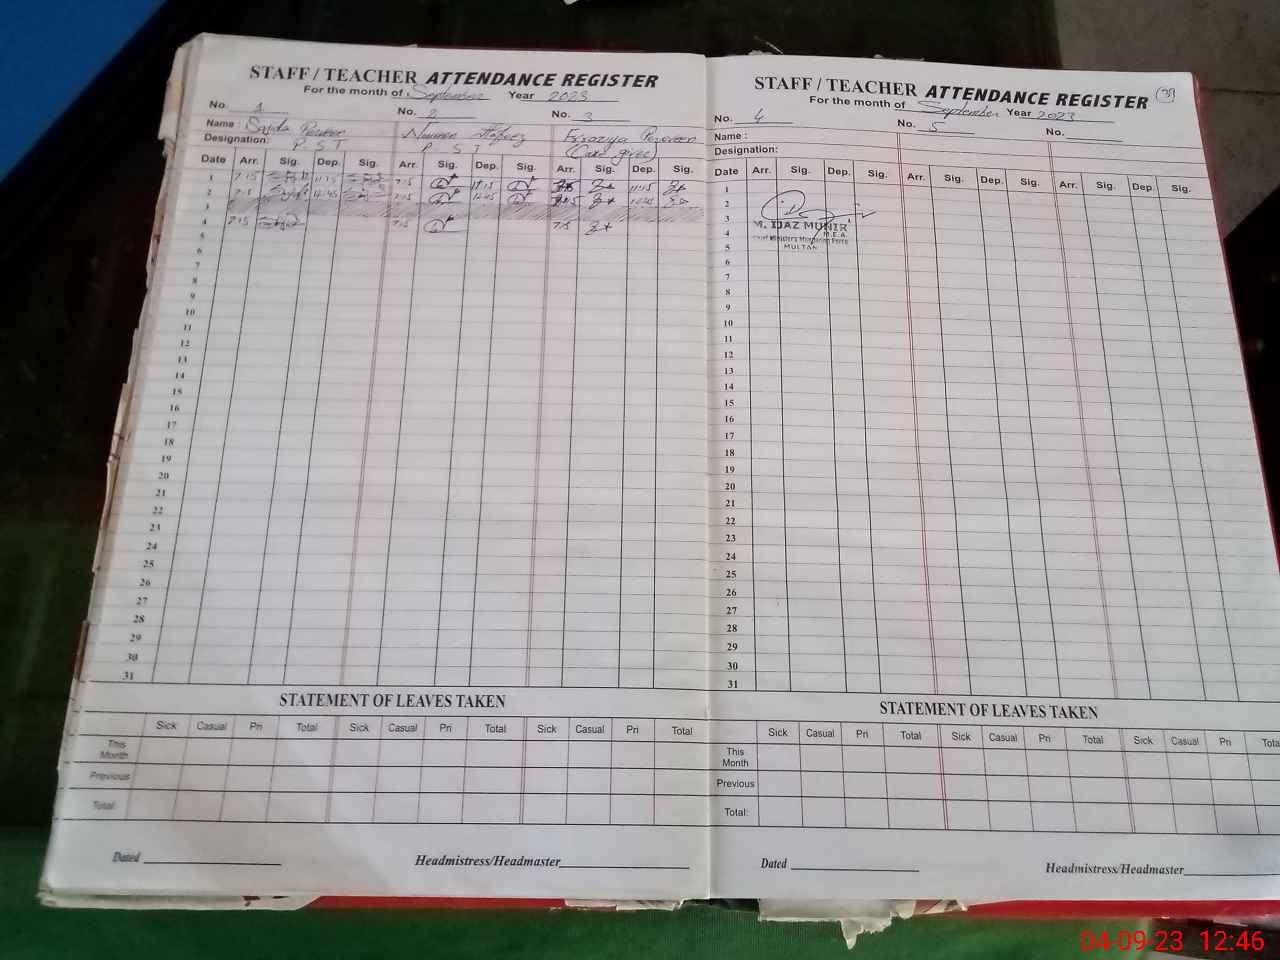 STAFF / TEACHER ATTENDANCE REGISTER
For the month of September Year 2023
No. 1 No. 2 No. 3
Name : Sajida Perveen
Designation: P.S.T P.S.T (Care giver)
Date Arr. Sig. Dep. Sig. Arr. Sig. Dep. Sig. Arr. Sig. Dep. Sig.
1 7:15 11:15 7:15 11:15 11:15
2 7:15 12:45 7:15 12:45 12:45
3
4 7:15 7:15 7:15
5
6
7
8
9
10
11
12
13
14
15
16
17
18
19
20
21
22
23
24
25
26
27
28
29
30
31
STATEMENT OF LEAVES TAKEN
Sick Casual Pri Total Sick Casual Pri Total Sick Casual Pri Total
This Month
Previous
Total:
Dated Headmistress/Headmaster
STAFF / TEACHER ATTENDANCE REGISTER
For the month of September Year 2023
No. 4 No. 5 No.
Name :
Designation:
Date Arr. Sig. Dep. Sig. Arr. Sig. Dep. Sig. Arr. Sig. Dep. Sig.
1
2
3
4
5
M. IJAZ MUNIR
M.E.A.
Chief Minister's Monitoring Force
MULTAN
6
7
8
9
10
11
12
13
14
15
16
17
18
19
20
21
22
23
24
25
26
27
28
29
30
31
STATEMENT OF LEAVES TAKEN
Sick Casual Pri Total Sick Casual Pri Total Sick Casual Pri Tota
This Month
Previous
Total:
Dated Headmistress/Headmaster
04-09-23 12:46